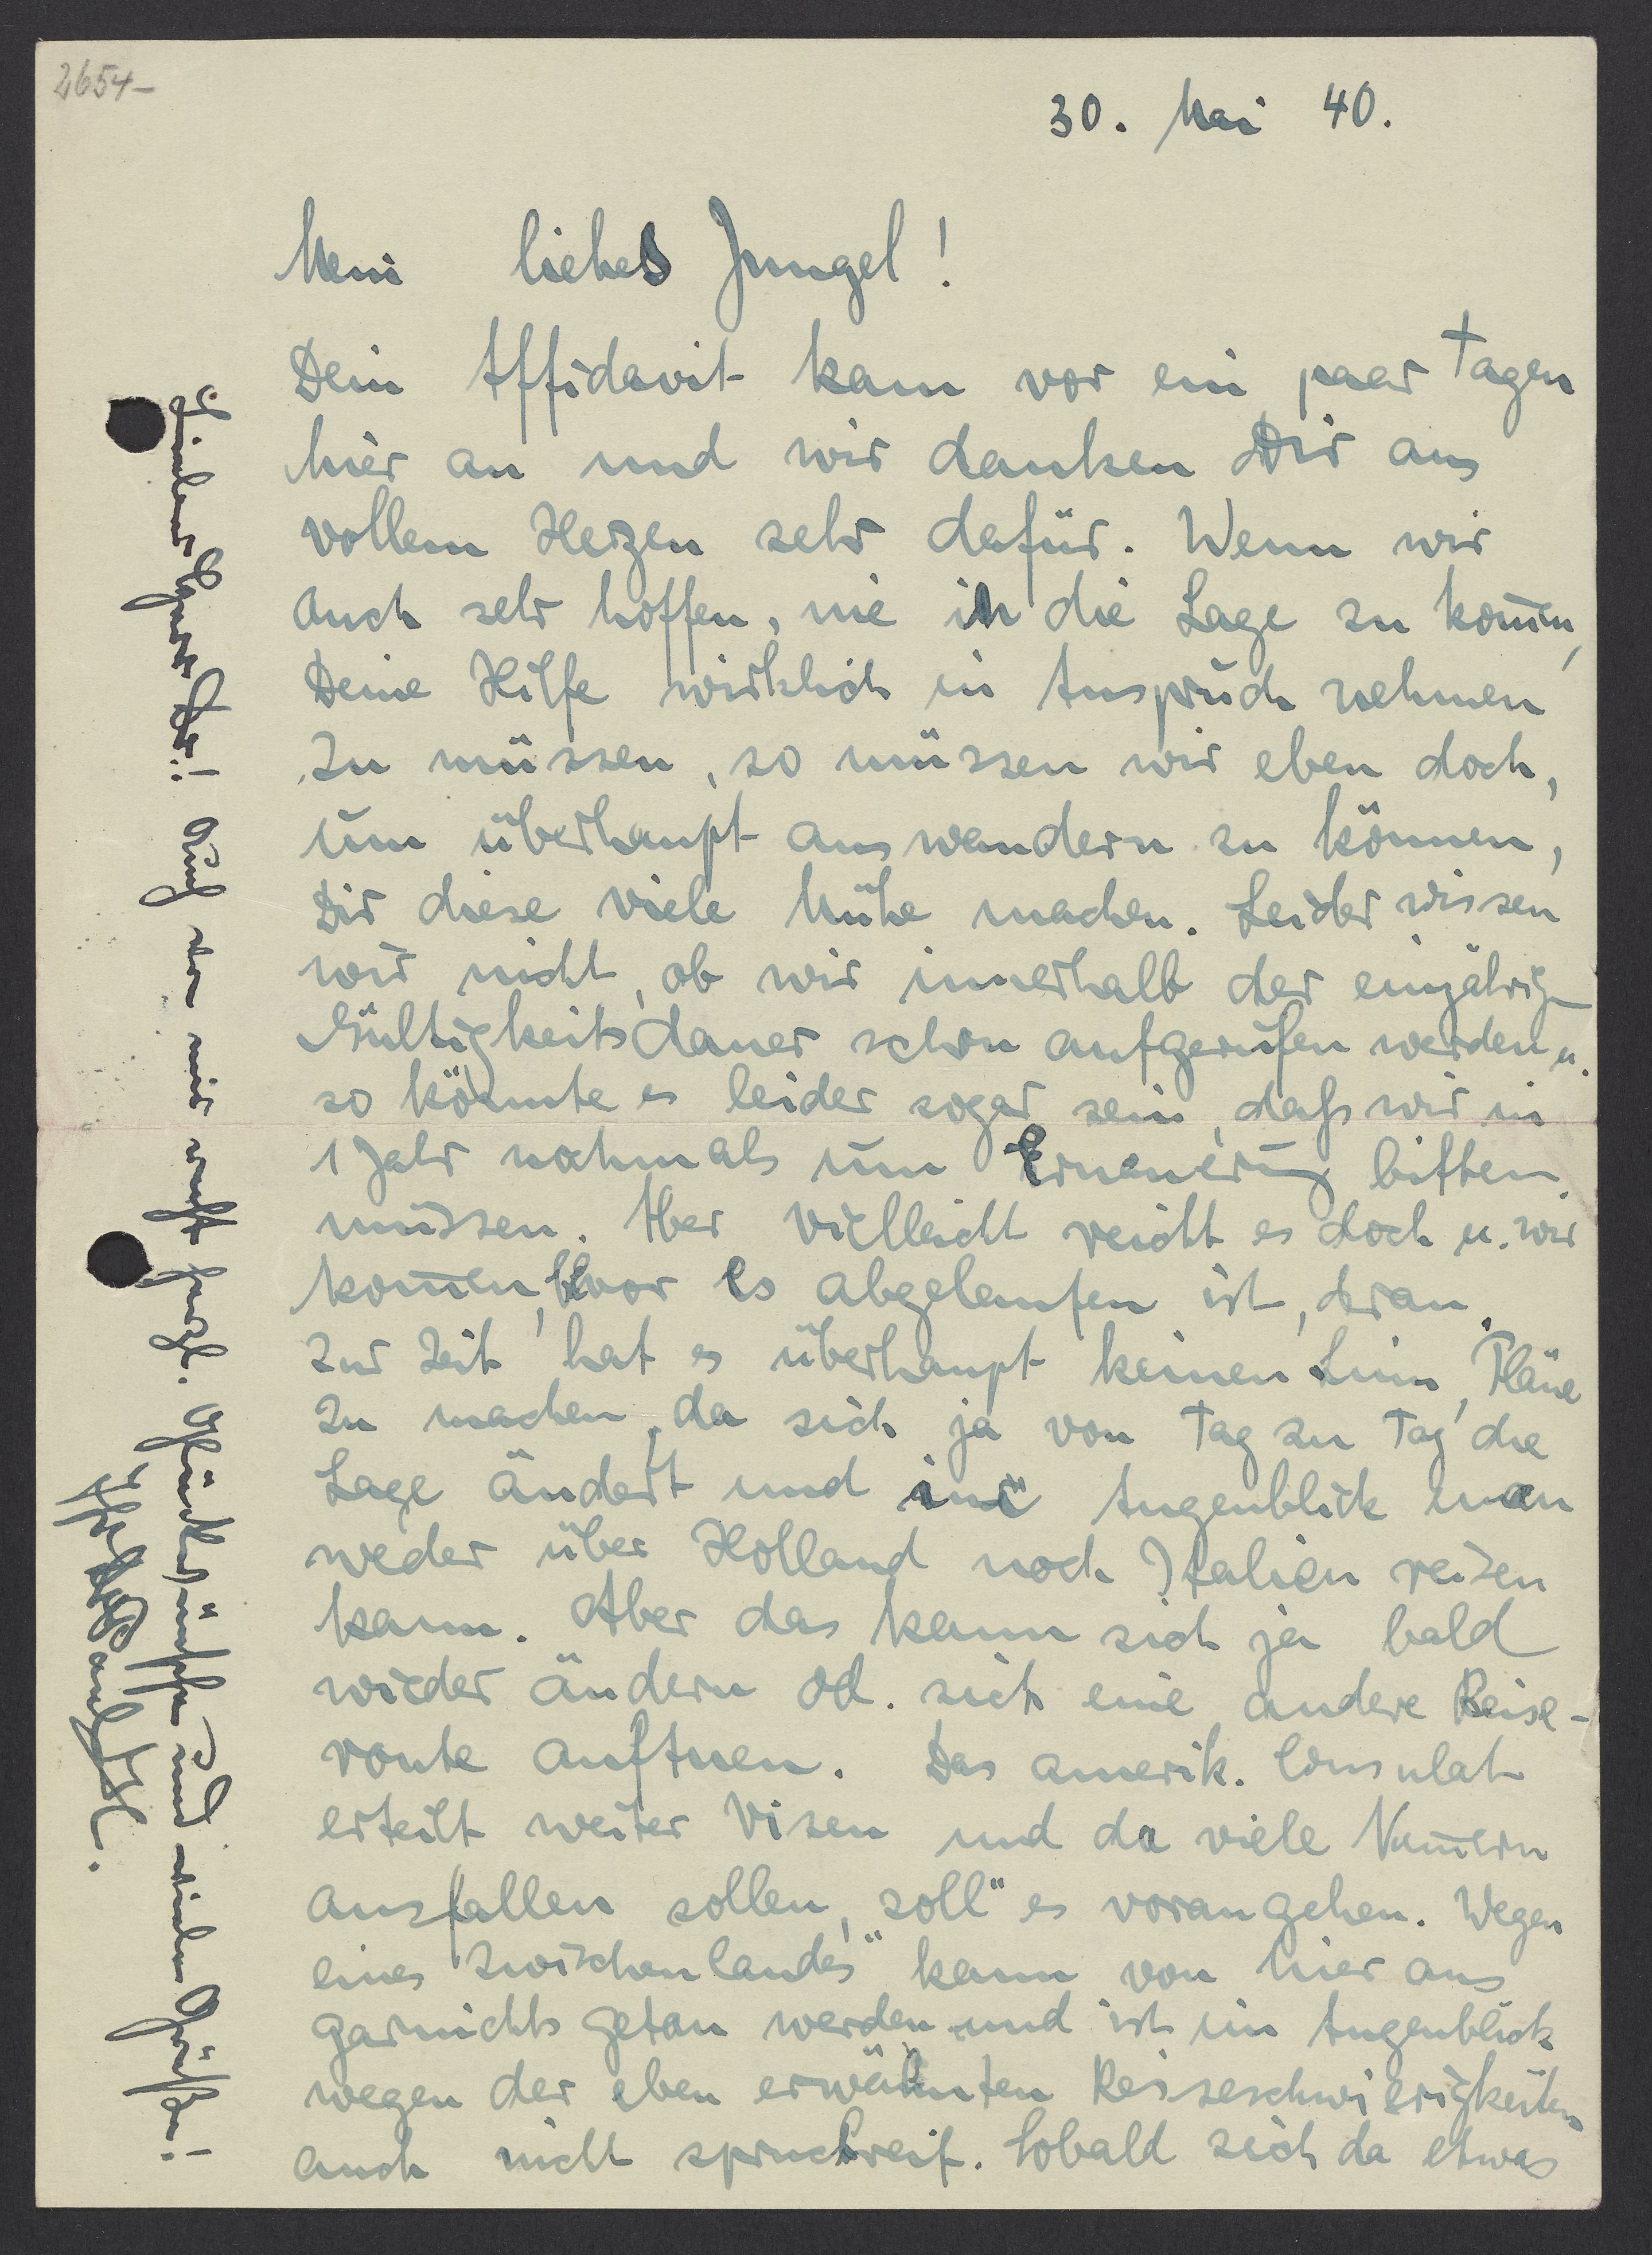 2654-
30. Mai 40.
Mein liebes Jungel!
Dein Affidavit kam vor ein paar Tagen
hier an und wir danken Dir aus
vollem Herzen sehr dafür. Wenn wir
auch sehr hoffen, nie in die Lage zu kom̅en,
Deine Hilfe wirklich in Anspruch nehmen
zu müssen, so müssen wir eben doch,
um überhaupt auswandern zu können,
Dir diese viele Mühe machen. Leider wissen
wir nicht, ob wir innerhalb der einjährig
Gültigkeitsdauer schon aufgerufen werden u.
so könnte es leider sogar sein, dass wir in
1 Jahr nochmals um Erneuerung bitten
müssen. Aber vielleicht reicht es doch u. wir
kom̅en, bevor es abgelaufen ist, dran.
Zur Zeit hat es überhaupt keinen Sinn, Pläne
zu machen, da sich ja von Tag zu Tag die
Lage ändert und im Augenblick man
weder über Holland noch Italien reisen
kann. Aber das kann sich ja bald
wieder ändern od. sich eine andere Reise-
route auftuen. Das amerik. Consulat
erteilt weiter Visen und da viele Num̅ern
ausfallen sollen, "soll" es vorangehen. Wegen
eines "Zwischenlandes" kann von hier aus
garnichts getan werden und ist im Augenblick
wegen der eben erwähnten Reiseschwierigkeiten
auch nicht spruchreif. Sobald sich da etwas
Lieber Herr! Auch von mir recht herzl. Glückwünsche und viele Grüße!
Ihr Paul H.